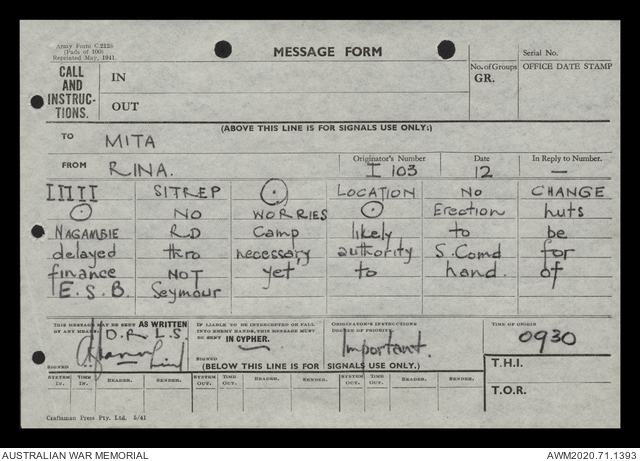 Army Form C.2128
(Pads of 100)
Reprinted May, 1941.
MESSAGE FORM
Serial No.
CALL AND INSTRUC-TIONS.
IN
OUT
No. of Groups GR.
OFFICE DATE STAMP
(ABOVE THIS LINE IS FOR SIGNALS USE ONLY:)
TO MITA
FROM RINA.
Originator's Number I 103
Date 12
In Reply to Number. —
SITREP LOCATION NO CHANGE
NO WORRIES Erection huts
NAGAMBIE RD Camp likely to be
delayed thro necessary authority S. Comd for
finance NOT yet to hand. of
E.S.B. Seymour
THIS MESSAGE MAY BE SENT AS WRITTEN BY ANY MEANS.
D.R.L.S.
SIGNED
IF LIABLE TO BE INTERCEPTED OR FALL INTO ENEMY HANDS, THIS MESSAGE MUST BE SENT IN CYPHER.
SIGNED
ORIGINATOR'S INSTRUCTIONS DEGREE OF PRIORITY.
Important.
TIME OF ORIGIN
0930
(BELOW THIS LINE IS FOR SIGNALS USE ONLY.)
T.H.I.
T.O.R.
SYSTEM IN. TIME IN. READER. SENDER. SYSTEM OUT. TIME OUT. READER. SENDER. SYSTEM OUT. TIME OUT. READER. SENDER.
Craftsman Press Pty. Ltd. 5/41
AUSTRALIAN WAR MEMORIAL
AWM2020.71.1393